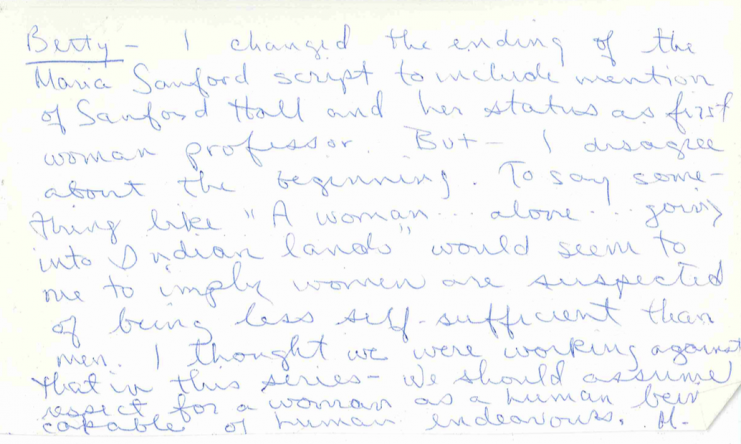 Betty - I changed the ending of the
Maria Sanford script to include mention
of Sanford Hall and her status as first
woman professor. But - I disagree
about the beginning. To say some-
thing like "A woman... alone... going
into Indian lands" would seem to
me to imply women are suspected
of being less self-sufficient than
men. I thought we were working against
that in this series - we should assume
respect for a woman as a human bein
capable of human endeavours. M.